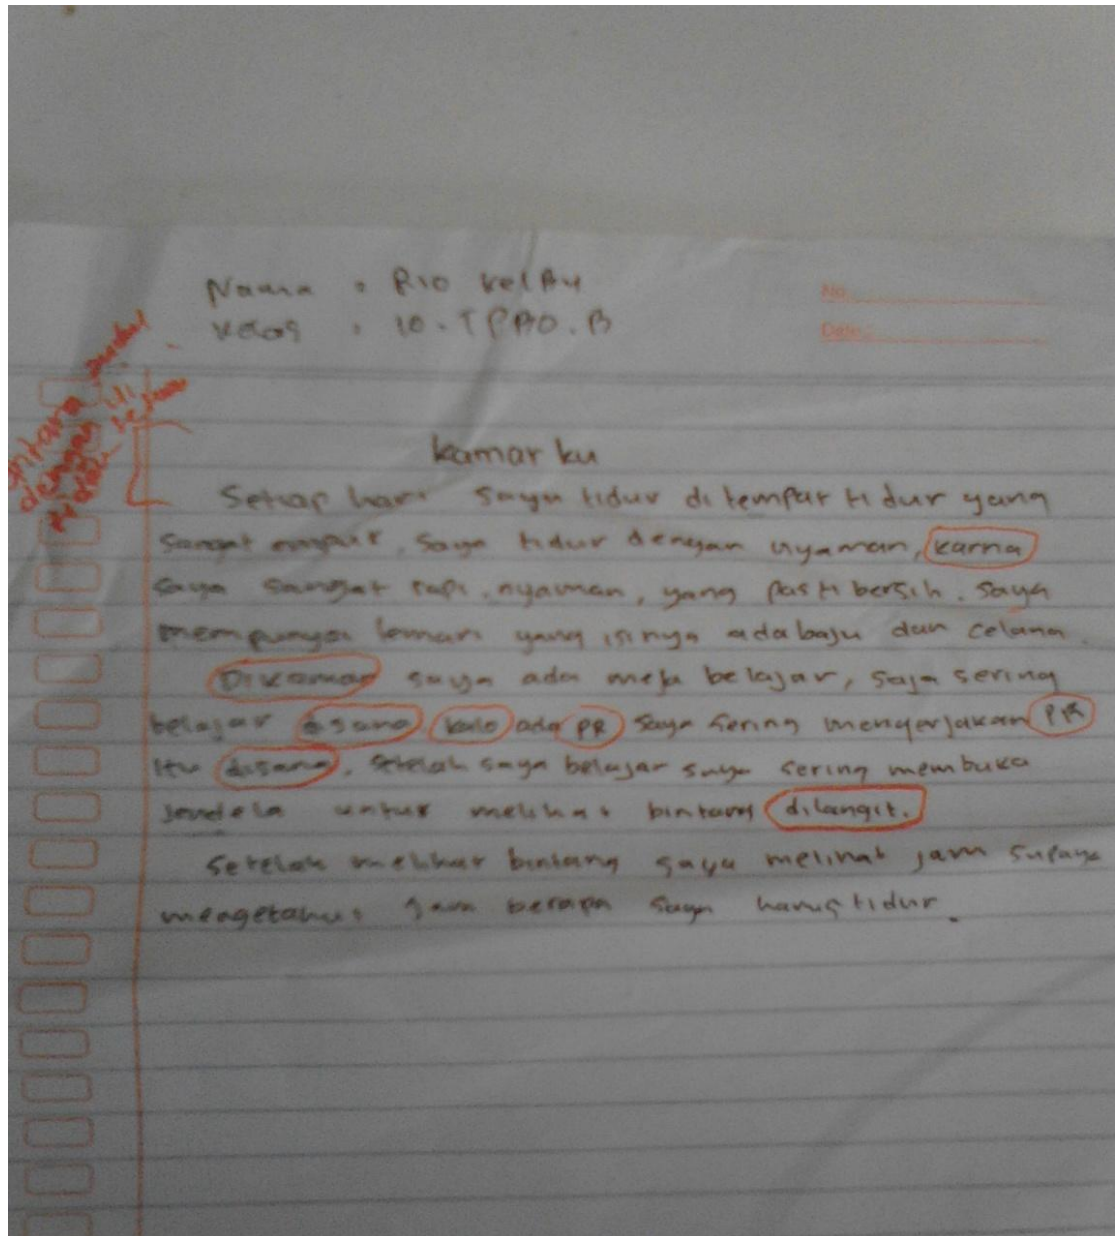 Nama : Rio
Kelas : 10. TPBO. B
No.
Date:
antara judul
dengan isi
kamar ku
Setiap hari saya tidur ditempat tidur yang
sangat empuk. Saya tidur dengan nyaman, karna
saya sangat rapi, nyaman, yang pasti bersih. Saya
mempunyai lemari yang isinya ada baju dan celana.
Dikamar saya ada meja belajar, saya sering
belajar disana kalo ada PR saya sering mengerjakan PR
itu disana. Setelah saya belajar saya sering membuka
jendela untuk melihat bintang dilangit.
Setelah melihat bintang saya melihat jam supaya
mengetahui jam berapa saya harus tidur.